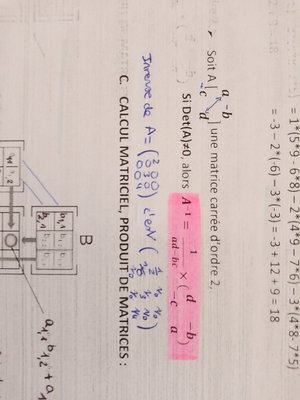 = 1*(5*9-6*8) - 2*(4*9-7*6) - 3*(4*8-7*5)
= -3 - 2*(-6) - 3*(-3) = -3 + 12 + 9 = 18
• Soit A [a -b
-c d] une matrice carrée d'ordre 2,
Si Det(A)≠0, alors A⁻¹ = 1/(ad-bc) × (d -b
-c a)
Inverse de A = (2 0 0
0 3 0
0 0 4) c'est (1/2 %
1/3 %
C. CALCUL MATRICIEL, PRODUIT DE MATRICES :
B
b1,1
b2,1
a1,1 b1,2 + a1